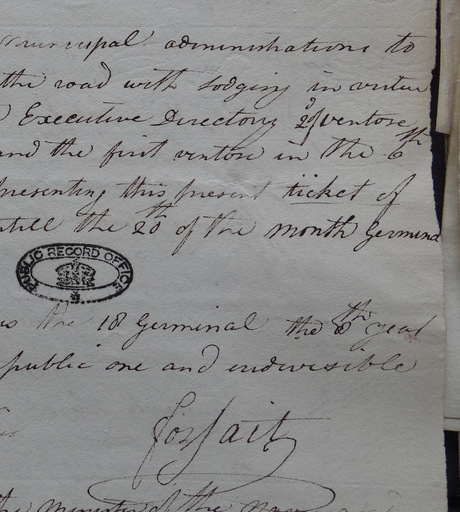 municipal administrations to
the road with lodging in virtue
Executive Directory 29 ventose
and the first ventose in the 6th
presenting this present ticket of
untill the 20th of the month Germinal
PUBLIC RECORD OFFICE
the 18 Germinal the 8th year
public one and indivisible
forfait
the minister of the Navy and